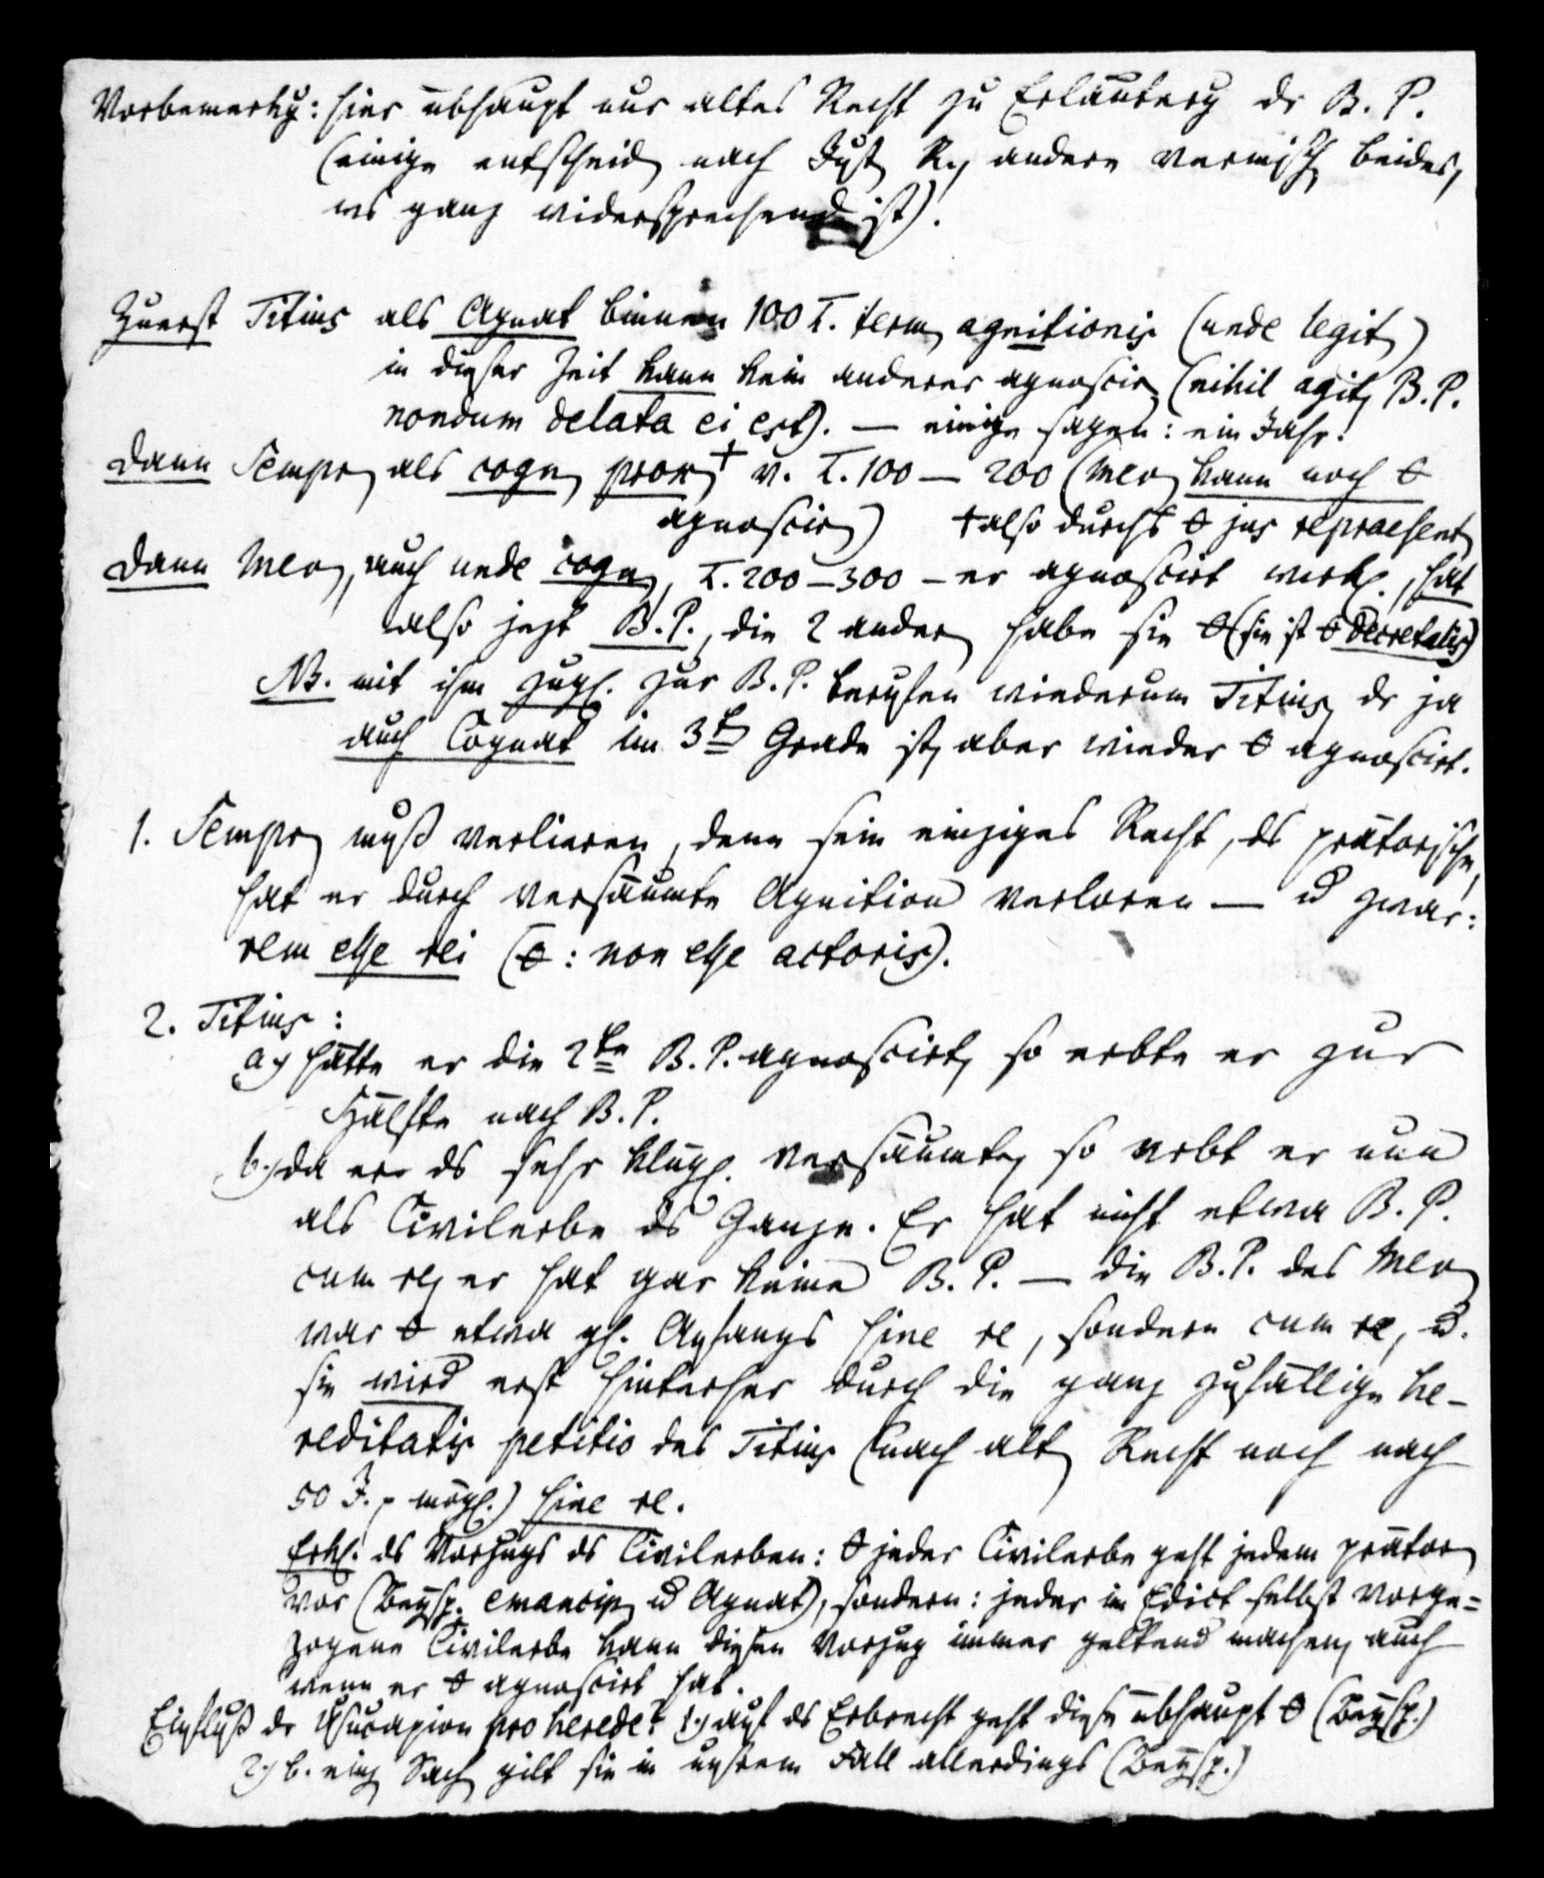 Vorbemerkg: hier übhaupt nur altes Recht zu Erläuterg dr B. P.
(einige entscheid nach Just R, andere vermisch beides,
ws ganz widersprechend ist).
Zuerst Titius als Agnat binnen 100 T. term agnitionis (unde legit)
in dieser Zeit kann kein anderer agnoscir (nihil agit, B. P.
nondum delata ei est). — einige sagen: ein Jahr.
dann Sempr als cogn prox † v. T. 100 — 200 (Mev kann noch 0
agnoscir) † also durchs 0 jus repraesent
dann Mev, auch unde cogn, T. 200 — 300 — er agnoscirt wirkl., hat
also jezt B. P., die 2 andern habe sie 0 (sie ist 0 decretalis)
NB. mit ihm zugl. zur B. P. berufen wiederum Titius, dr ja
auch Cognat im 3t Grade ist, aber wieder 0 agnoscirt.
1. Sempr muß verlieren, denn sein einziges Recht, ds prätorische,
hat er durch versäumte Agnition verloren — u zwar:
rem esse rei (0: non esse actoris).
2. Titius:
a.) hätte er die 2te B. P. agnoscirt, so erbte er zur
Hälfte nach B. P.
b.) da er ds sehr klügl. versäumte, so erbt er nun
als Civilerbe ds Ganze. Er hat nicht etwa B. P.
cum re, er hat gar keine B. P. — die B. P. des Mev
war 0 etwa gl. Anfangs sine re, sondern cum re, u.
sie wird erst hinterher durch die ganz zufällige he-
reditatis petitio des Titius (nach alt Recht noch nach
50 J. mögl.) sine re.
Erkl. ds Vorzugs ds Civilerben: 0 jeder Civilerbe geht jedem prätor
vor (Beysp. emancip u Agnat), sondern: jeder im Edict selbst vorge=
zogene Civilerbe kann diesen Vorzug immer geltend machen, auch
wenn er 0 agnoscirt hat.
Einfluß dr Usucapion pro herede? 1.) auf ds Erbrecht geht diese übhaupt 0 (Beysp.)
2.) b. einz Sach gilt sie in unsrem Fall allerdings (Beysp.)